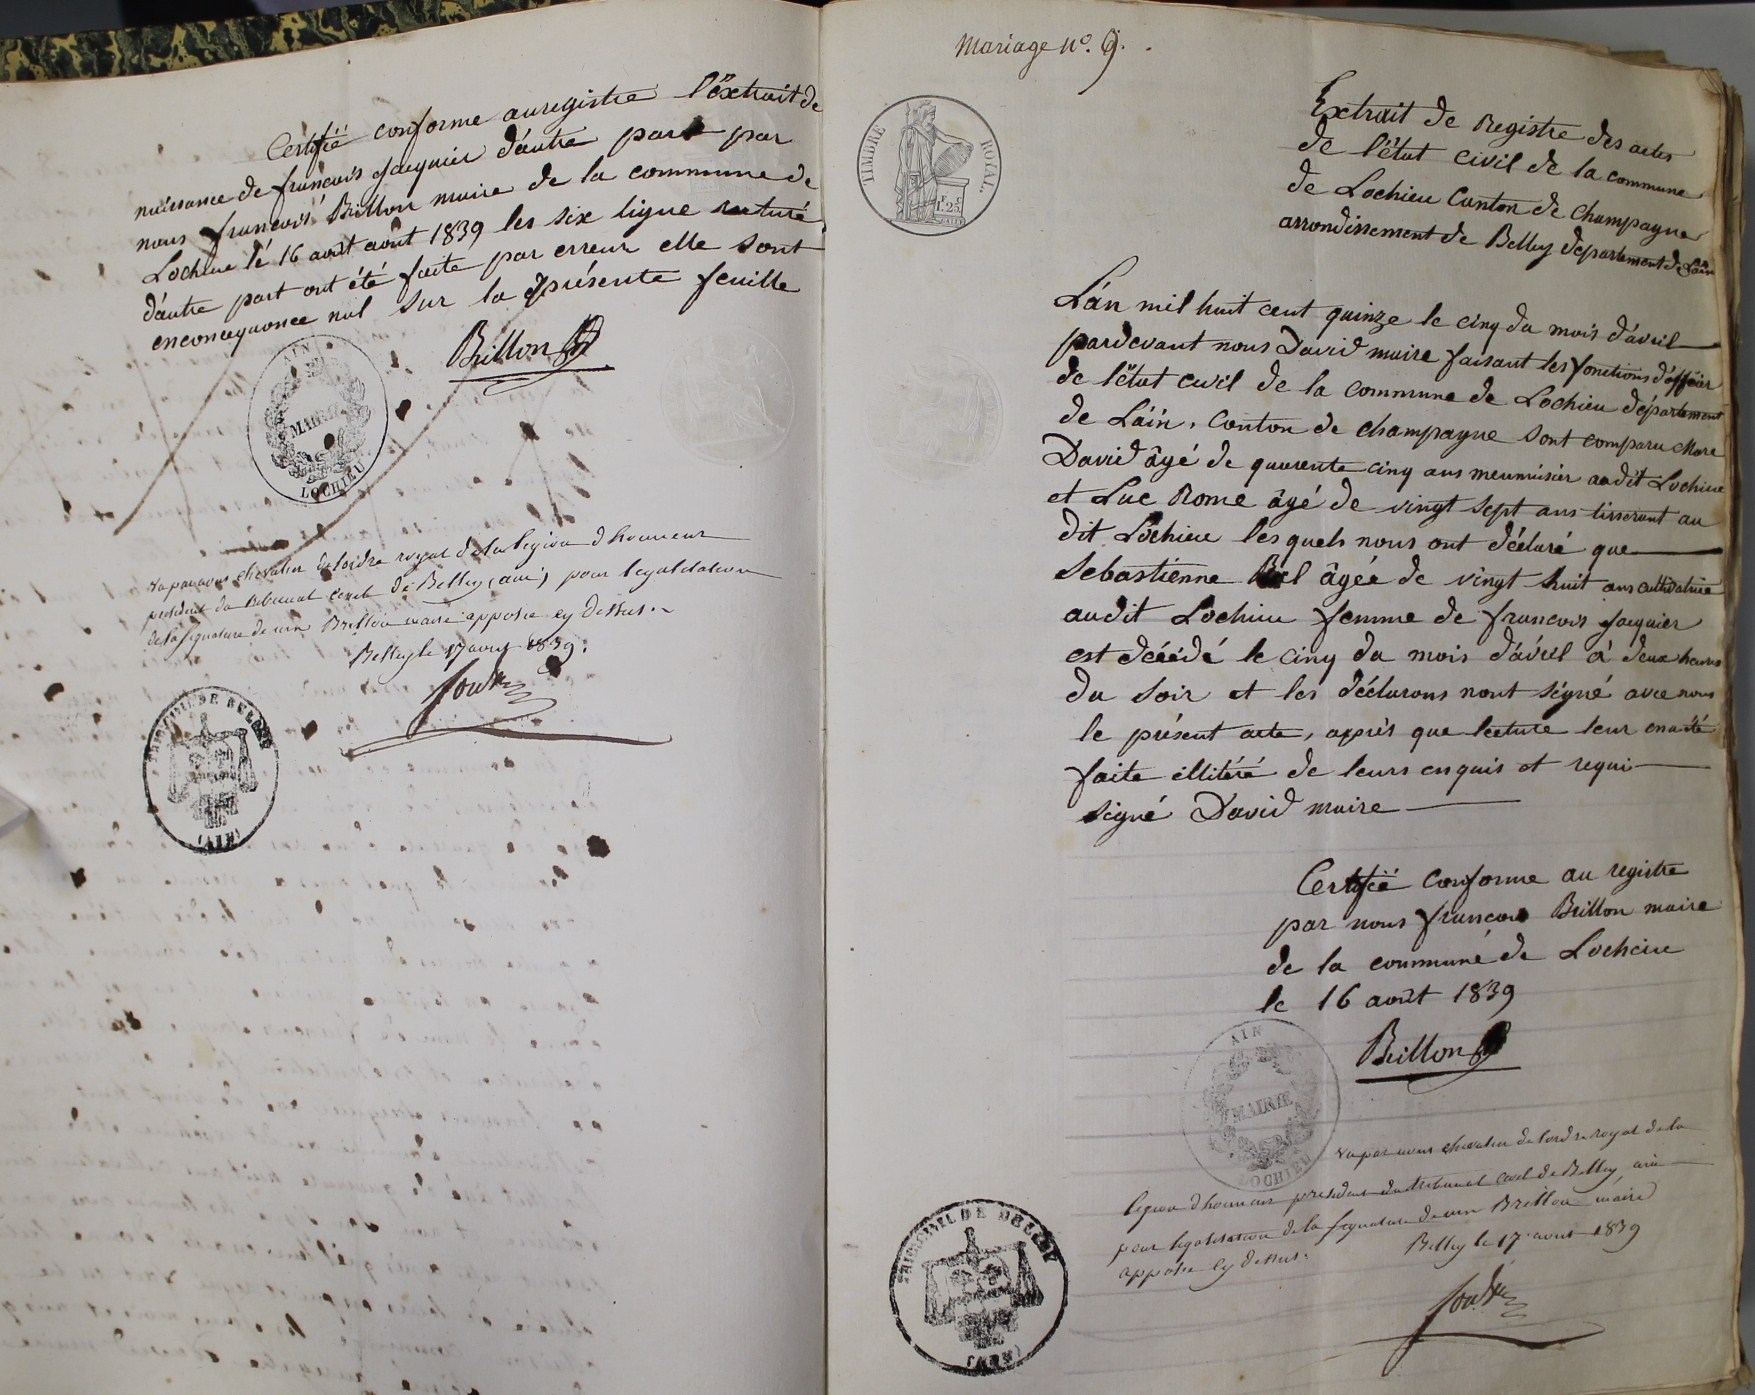 Certifië conforme au registre l'ëxtrait de
naissance de francois jacquier d'autre part par
nous francois Brillon maire de la commune de
Lochieu lé 16 août août 1839 les six ligne raturé
d'autre part ont été faite par erreur elle sont
enconcequonce nul sur la présente feuille
Brillon
AIN
MAIRIE
LOCHIEU
vu par nous chevalier de lordre royal de la legion d honneur
president du tribunal civil de Belley (ain) pour legalisation
de la signature de mr Brillon maire apposée cy dessus.
Belley le 17 aout 1839.
TRIBUNAL DE BELLEY
(AIN)
Mariage n°. 9.
TIMBRE ROYAL.
1F. 25C
Extrait de Registre des actes
de l'état civil de la commune
de Lochieu Canton de Champagne
arrondissement de Belley département de L'ain
L'án mil huit cent quinze le cinq du mois d'avril
pardevant nous David maire faisant les fonctions d'officier
de l'ëtat civil de la commune de Lochieu département
de L'áin, Canton de champagne sont comparu Marc
David âgé de quarente cinq ans meunüsier audit Lochieu
et Luc Rome âgé de vingt sept ans tisserant au
dit Lochieu lesquels nous ont déclaré que
Sebastienne Bal âgée de vingt huit ans cultivatrice
audit Lochieu femme de francois jacquier
est décédé le cinq du mois d'avril à deux heures
du soir et les déclarans nont signé avec nous
le présent acte, aprés que lecture leur enaété
faite illitéré de leurs enquis et requi
signé David maire
Certifië conforme au registre
par nous francois Brillon maire
de la communé de Lochieu
le 16 août 1839
Brillon
AIN
MAIRIE
LOCHIEU
vu par nous chevalier de lordre royal de la
legion d honneur president du tribunal civil de Belley ain
pour legalisation de la signature de mr Brillon maire
apposée cy dessus. Belley le 17 aout 1839
TRIBUNAL DE BELLEY
(AIN)